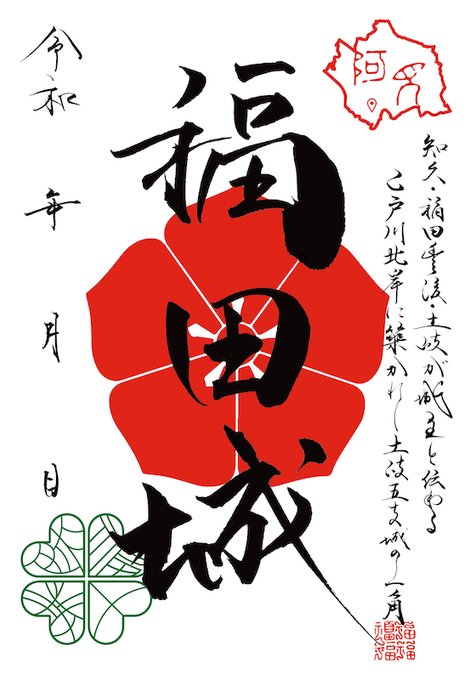 阿見
知久・福田豊後・土岐が城主と伝わる
乙戸川北岸に築かれし土岐五支城の一角
福田城
令和 年 月 日